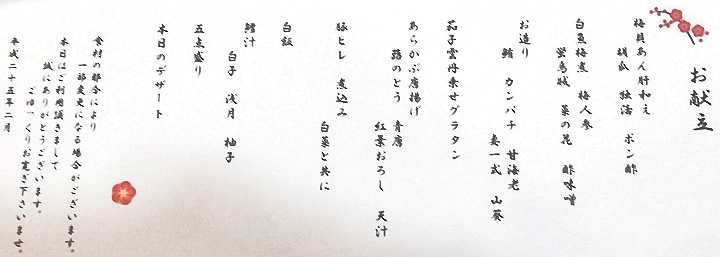 お献立
梅貝あん肝和え
胡瓜 独活 ポン酢
白魚梅煮 梅人参
蛍烏賊 菜の花 酢味噌
お造り
鮪 カンパチ 甘海老
妻一式 山葵
茄子雲丹乗せグラタン
あらかぶ唐揚げ
蕗のとう 青唐
紅葉おろし 天汁
豚ヒレ 煮込み
白菜と共に
白飯
鱈汁
白子 浅月 柚子
五点盛り
本日のデザート
食材の都合により
一部変更になる場合がございます。
本日はご利用頂きまして
誠にありがとうございます。
ごゆっくりお寛ぎ下さいませ。
平成二十五年二月